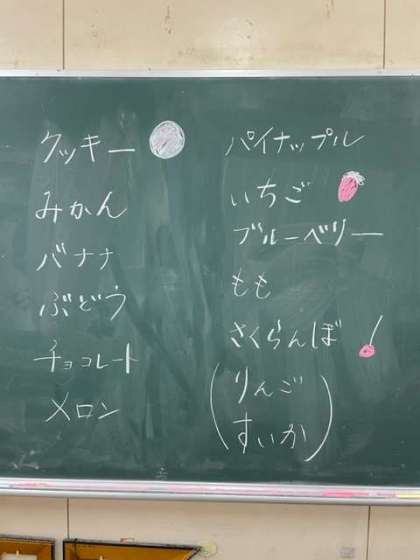 クッキー
みかん
バナナ
ぶどう
チョコレート
メロン
パイナップル
いちご
ブルーベリー
もも
さくらんぼ
(りんご
すいか)